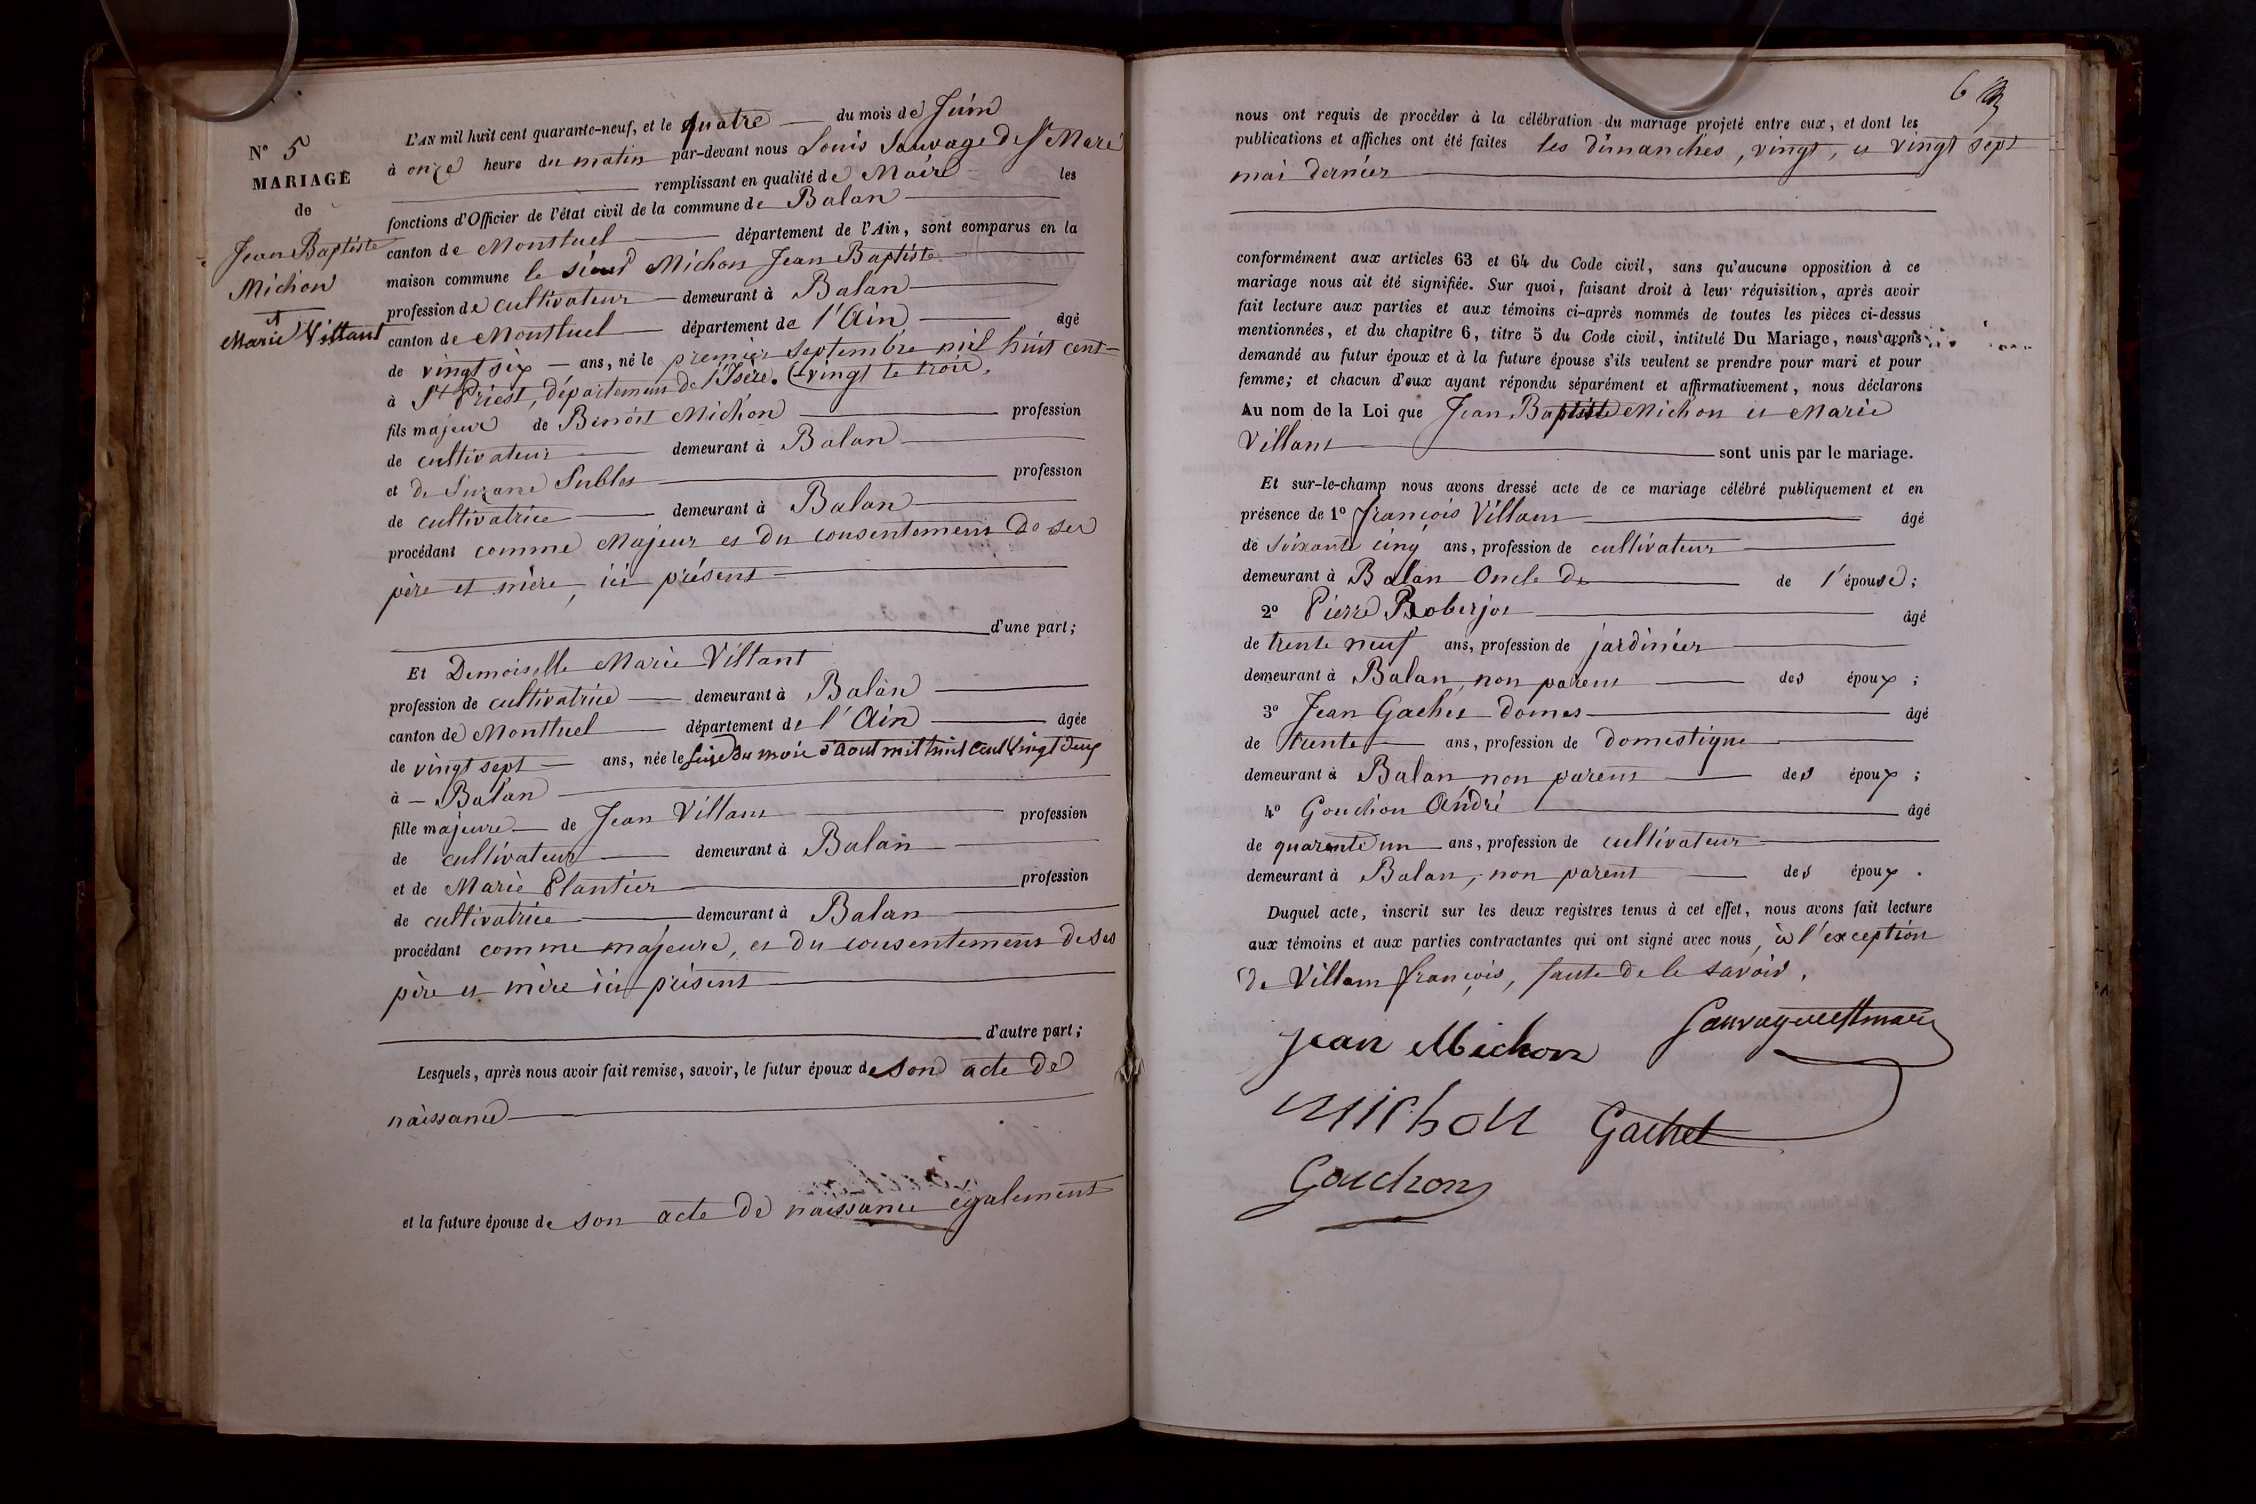 N° 5
MARIAGE
de
Jean Baptiste
Michon
et
Marie Villant
L'AN mil huit cent quarante-neuf, et le quatre du mois de Juin
à onze heure du matin par-devant nous Louis Sauvage de St Marc
remplissant en qualité de Maire les
fonctions d'Officier de l'état civil de la commune de Balan
canton de Montluel département de l'Ain, sont comparus en la
maison commune le sieur Michon Jean Baptiste
profession de cultivateur demeurant à Balan
canton de Montluel département de l'Ain âgé
de vingt six ans, né le premier septembre mil huit cent
à St Priest, département de l'Isère. (vingt te trois.
fils majeur de Benoit Michon profession
de cultivateur demeurant à Balan
et de Suzane profession
de cultivatrice demeurant à Balan
procédant comme Majeur et du consentement de ses
père et mère, ici présent
d'une part;
Et Demoiselle Marie Villant
profession de cultivatrice demeurant à Balan
canton de Montluel département de l'Ain âgée
de vingt sept ans, née le seize du mois d'aout mil huit cent vingt deux
à Balan
fille majeure de Jean Villant profession
de cultivateur demeurant à Balan
et de Marie Plantier profession
de cultivatrice demeurant à Balan
procédant comme majeure, et du consentement de ses
père et mère ici présent
d'autre part;
Lesquels, après nous avoir fait remise, savoir, le futur époux de son acte de
naissance
et la future épouse de son acte de naissance également
6
nous ont requis de procéder à la célébration du mariage projeté entre eux, et dont les
publications et affiches ont été faites les dimanches, vingt, et vingt sept
mai dernier
conformément aux articles 63 et 64 du Code civil, sans qu'aucune opposition à ce
mariage nous ait été signifiée. Sur quoi, faisant droit à leur réquisition, après avoir
fait lecture aux parties et aux témoins ci-après nommés de toutes les pièces ci-dessus
mentionnées, et du chapitre 6, titre 5 du Code civil, intitulé Du Mariage, nous avons
demandé au futur époux et à la future épouse s'ils veulent se prendre pour mari et pour
femme; et chacun d'eux ayant répondu séparément et affirmativement, nous déclarons
Au nom de la Loi que Jean Baptiste Michon et Marie
Villant sont unis par le mariage.
Et sur-le-champ nous avons dressé acte de ce mariage célébré publiquement et en
présence de 1° François Villant âgé
de soixante cinq ans, profession de cultivateur
demeurant à Balan Oncle de de l'épouse;
2° Pierre Roberjot âgé
de trente neuf ans, profession de jardinier
demeurant à Balan, non parent des époux;
3° Jean Gachet domes âgé
de trente ans, profession de domestique
demeurant à Balan non parent des époux;
4° Gouchon André âgé
de quarante un ans, profession de cultivateur
demeurant à Balan, non parent des époux.
Duquel acte, inscrit sur les deux registres tenus à cet effet, nous avons fait lecture
aux témoins et aux parties contractantes qui ont signé avec nous, à l'exception
de Villant françois, faute de le savoir.
Jean Michon
Michon Gachet
Gouchon